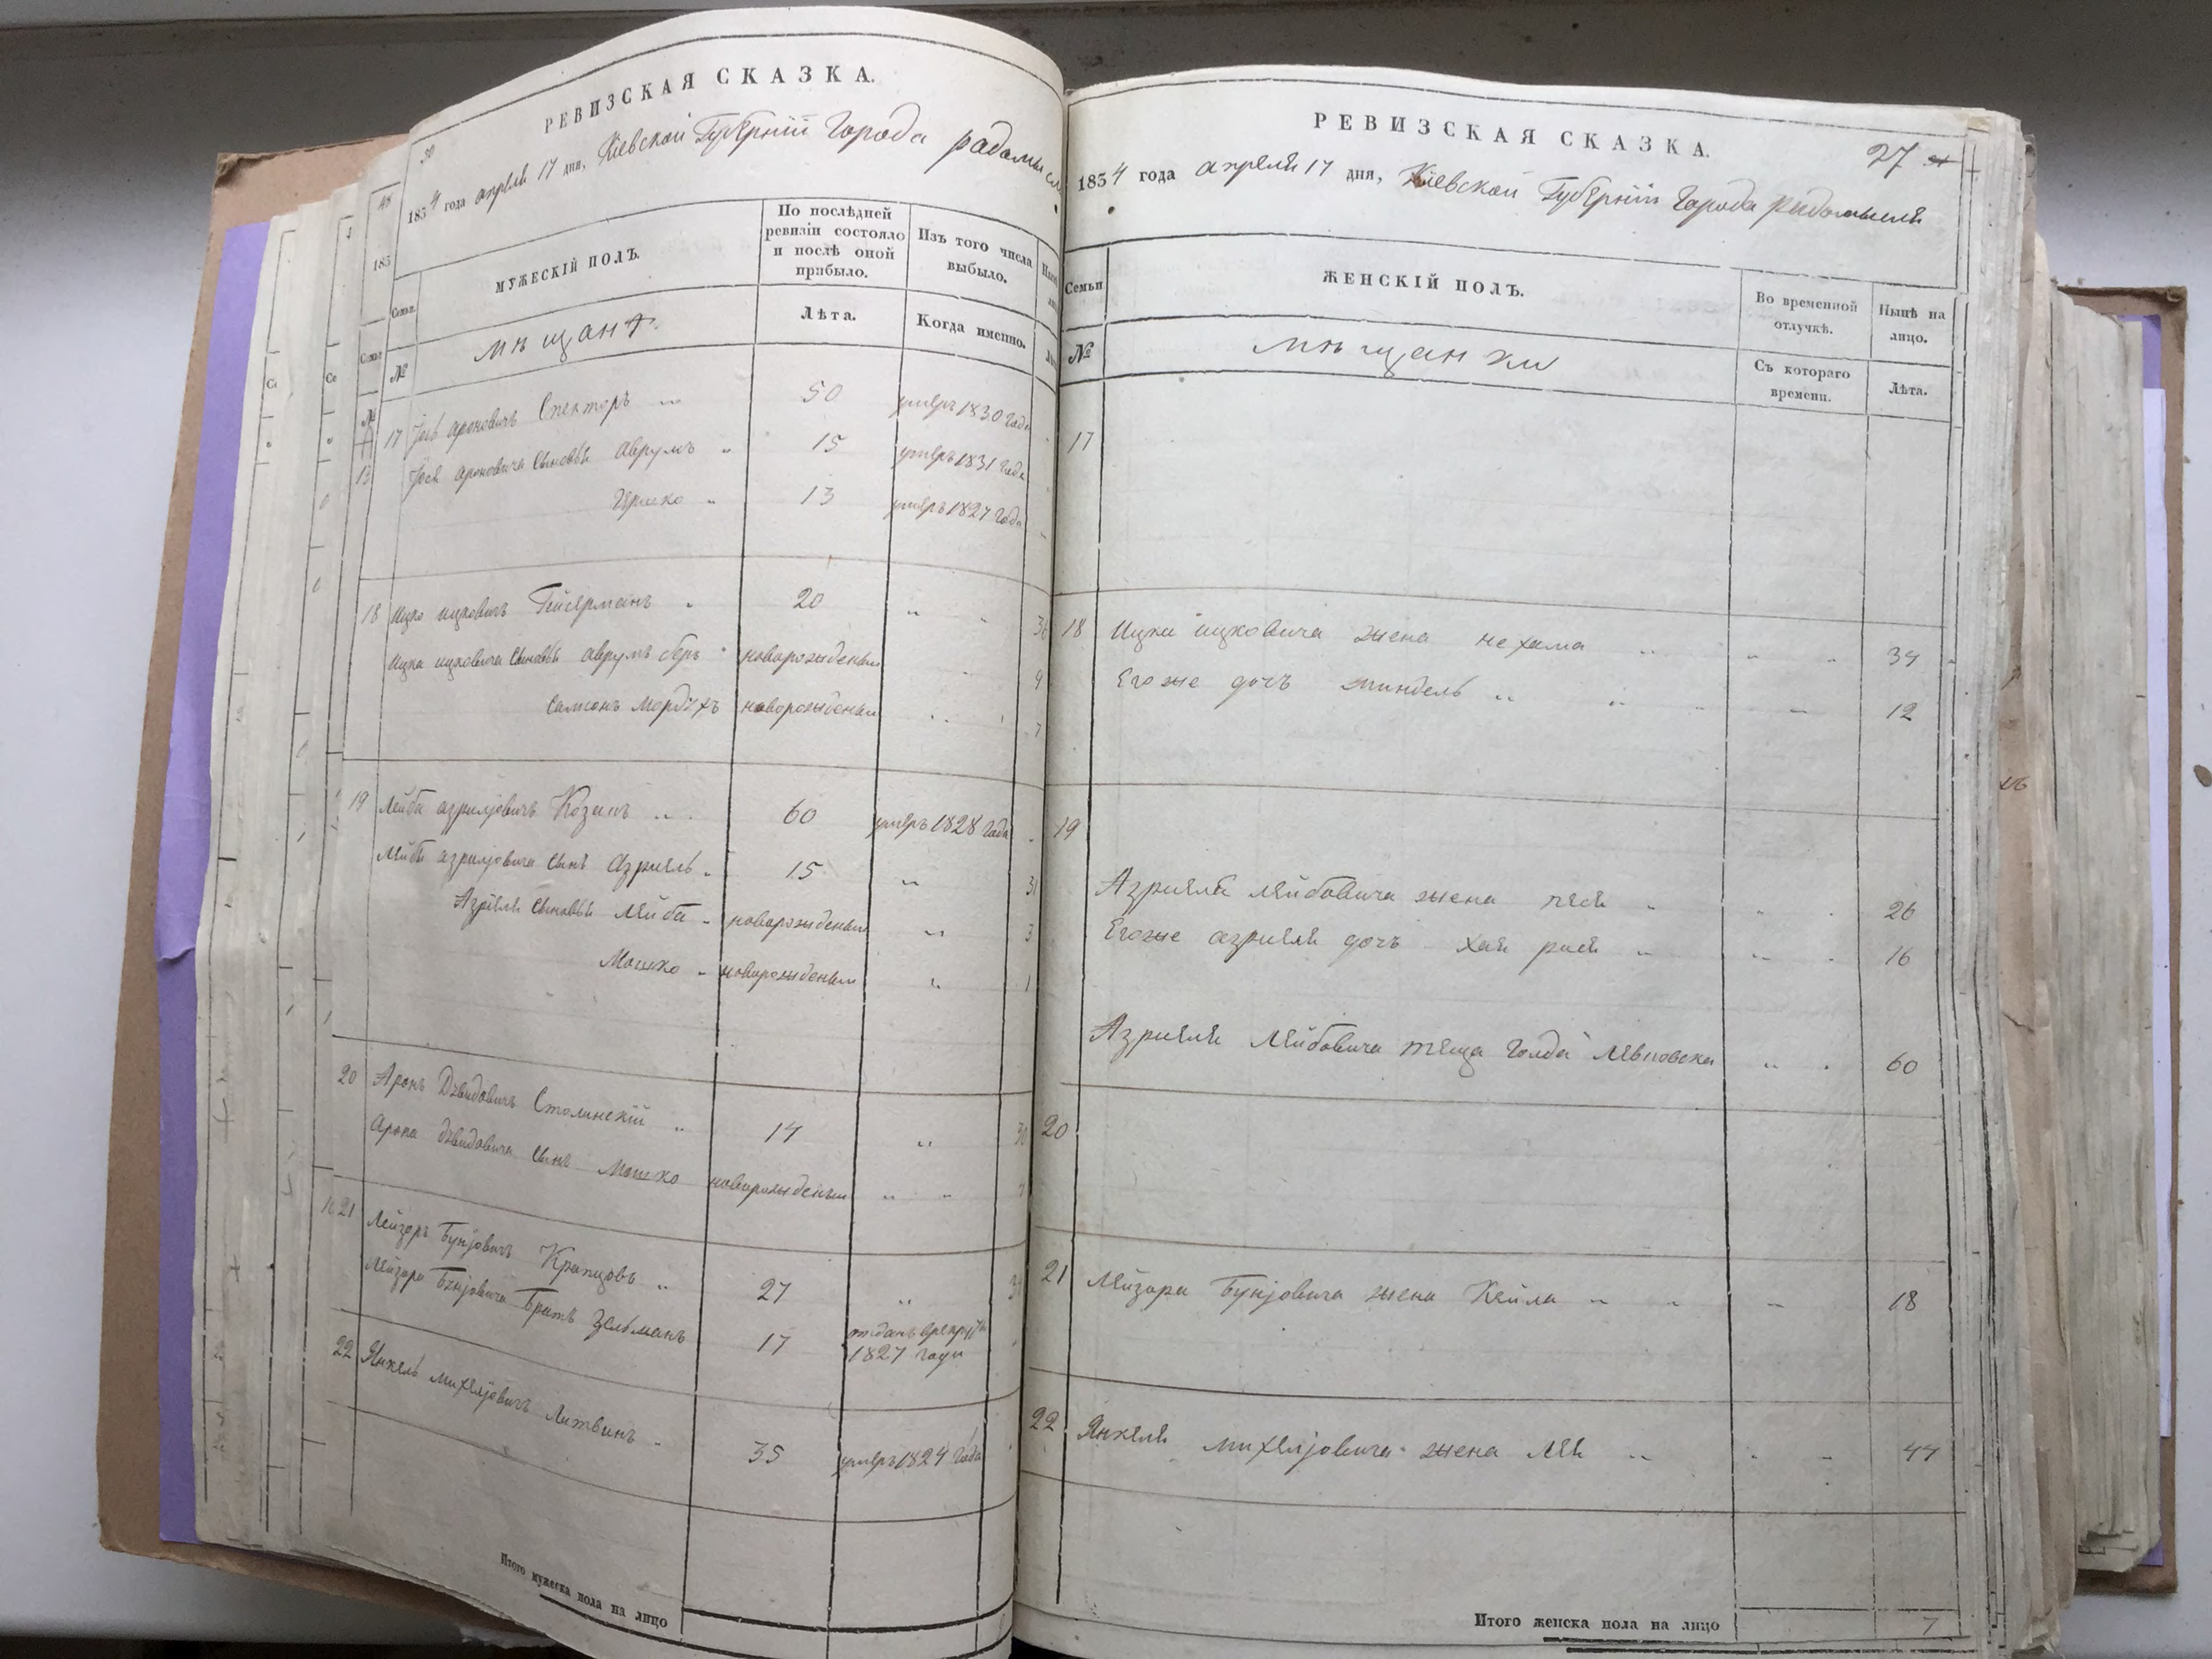 РЕВИЗСКАЯ СКАЗКА.
1854 года апреля 17 дня, Кіевской Губерніи Города радомысля
Семьи.
МУЖЕСКІЙ ПОЛЪ.
По послѣдней ревизіи состояло и послѣ оной прибыло.
Изъ того числа выбыло.
№
мѣщанѣ
Лѣта.
Когда именно.
17 Іось ароновичъ Спекторъ 50 умеръ 1830 года
Іося ароновича сыновья Аврумъ 15 умеръ 1831 года
Гершко 13 умеръ 1827 года
18 Ицко ицковичъ Гейсерманъ 20 36
Ицка ицковича сыновья аврумъ беръ новорожденый 9
самсонъ мордухъ новорожденый 7
19 Лейба азрилїовичъ Козанъ 60 умеръ 1828 года
Лейбы азрилїовича сынъ Азриель 15 31
Азріеля сыновья Лейба новорожденый 3
Мошко новорожденый 1
20 Аронъ Дувидовичъ Столинскій 14 30
Арона дувидовича сынъ Мошко новорожденый
21 Лейзоръ Бунїовичъ Крапцовъ 27
Лейзора Бунїовича братъ Зельманъ 17 отданъ врекруты
1827 года
22 Янкель михелїовичъ Литвинъ 35 умеръ 1824 года
Итого мужеска пола на лицо
РЕВИЗСКАЯ СКАЗКА.
27
1854 года апреля 17 дня, Кіевской Губерніи Города радомысля
Семьи
ЖЕНСКІЙ ПОЛЪ.
Во временной отлучкѣ.
Нынѣ на лицо.
№
мѣщанки
Съ котораго времени.
Лѣта.
17
18 Ицки ицковича жена нехама 34
Егоже дочъ миндель 12
19
Азриеля Лейбовича жена песя 26
Егоже азриеля дочъ хая рися 16
Азриеля Лейбовича теща Голда 60
20
21 Лейзора Бунїовича жена Кейла 18
22 Янкеля михелїовича жена Лея 44
Итого женска пола на лицо 7